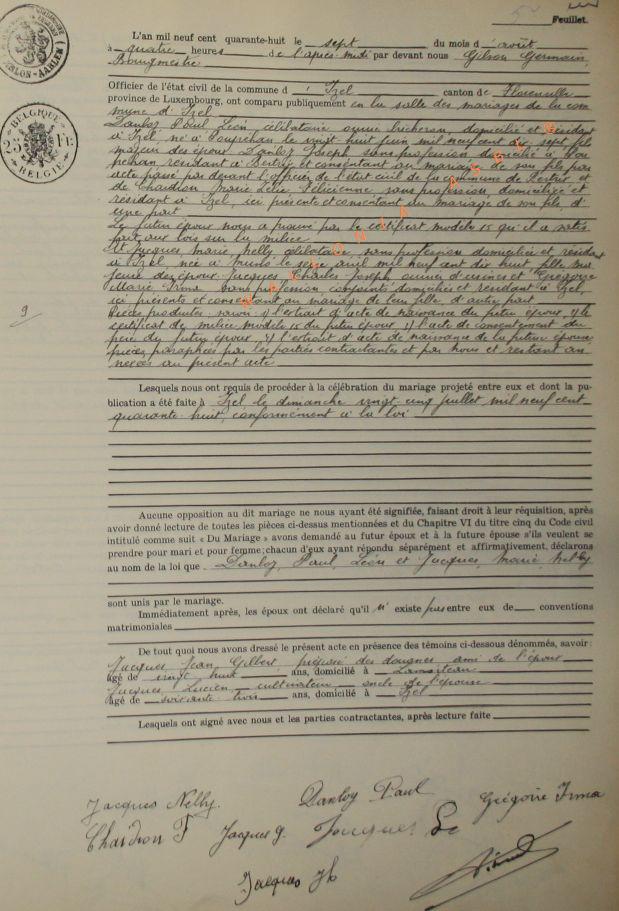 5
Feuillet.
ARLON-AARLEN
BELGIQUE
25 Fr.
BELGIE
L'an mil neuf cent quarante-huit le sept du mois d'août
à quatre heures de l'après-midi par devant nous Gilson Germain,
Bourgmestre
Officier de l'état civil de la commune d'Izel canton de Florenville
province de Luxembourg, ont comparu publiquement en la salle des mariages de la com
mune d'Izel
Danloy Paul Léon célibataire, domicilié et résidant
à Izel, né à Poupehan le vingt huit juin mil neuf cent sept fils
majeur des époux Danloy Joseph sans profession domicilié à Pou
pehan résidant à Bertrix et consentant au mariage de son fils par
acte passé par devant l'officier de l'état civil de la commune de Bertrix et
de Chaidron Marie Félicienne sans profession, domiciliée et
résidant à Izel, ici présente et consentant au mariage de son fils, d'
une part
Le futur époux nous a prouvé par le certificat modèle 15 qu'il a satis
fait aux lois sur la milice
Et Jacques Marie Nelly célibataire, sans profession domiciliée et résidant
à Izel née à le seize avril mil neuf cent dix huit fille ma
jeure des époux Jacques Charles Joseph et Grégoire
Marie Irma sans profession conjoints domiciliés et résidant à Izel,
ici présents et consentant au mariage de leur fille d'autre part
Pièces produites savoir : 1) l'extrait d'acte de naissance du futur époux 2) le
certificat de milice modèle 15 du futur époux 3) l'acte de consentement du
père du futur époux 4) l'extrait d'acte de naissance de la future épouse
pièces paraphées par les parties contractantes et par nous et restant an
nexées au présent acte
9
Lesquels nous ont requis de procéder à la célébration du mariage projeté entre eux et dont la pu-
blication a été faite à Izel le dimanche vingt cinq juillet mil neuf cent
quarante huit, conformément à la loi
Aucune opposition au dit mariage ne nous ayant été signifiée, faisant droit à leur réquisition, après
avoir donné lecture de toutes les pièces ci-dessus mentionnées et du Chapitre VI du titre cinq du Code civil
intitulé comme suit « Du Mariage » avons demandé au futur époux et à la future épouse s'ils veulent se
prendre pour mari et pour femme; chacun d'eux ayant répondu séparément et affirmativement, déclarons
au nom de la loi que Danloy, Paul, Léon et Jacques, Marie, Nelly
sont unis par le mariage.
Immédiatement après, les époux ont déclaré qu'il n'existe pas entre eux de conventions
matrimoniales
De tout quoi nous avons dressé le présent acte en présence des témoins ci-dessous dénommés, savoir :
Jacques Jean Gilbert, préposé des douanes ami de l'époux
âgé de vingt huit ans, domicilié à
Jacques Lucien cultivateur oncle de l'épouse
âgé de soixante trois ans, domicilié à Izel
Lesquels ont signé avec nous et les parties contractantes, après lecture faite
Jacques Nelly. Danloy Paul Grégoire Irma
Chaidron F Jacques g. Jacques Lc
Jacques Jh